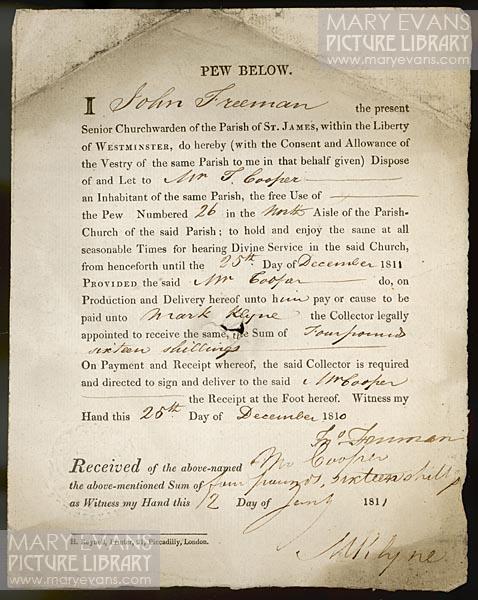 MARY EVANS
PICTURE LIBRARY
www.maryevans.com
PEW BELOW.
I John Freeman the present
Senior Churchwarden of the Parish of ST. JAMES, within the Liberty
of WESTMINSTER, do hereby (with the Consent and Allowance of
the Vestry of the same Parish to me in that behalf given) Dispose
of and Let to Mr T. Cooper
an Inhabitant of the same Parish, the free Use of
the Pew Numbered 26 in the North Aisle of the Parish-
Church of the said Parish; to hold and enjoy the same at all
seasonable Times for hearing Divine Service in the said Church,
from henceforth until the 25th Day of December 1811
PROVIDED the said Mr Cooper do, on
Production and Delivery hereof unto him pay or cause to be
paid unto Mark Klyne the Collector legally
appointed to receive the same, the Sum of Four pounds
sixteen shillings
On Payment and Receipt whereof, the said Collector is required
and directed to sign and deliver to the said Mr Cooper
the Receipt at the Foot hereof. Witness my
Hand this 25th Day of December 1810
Jno. Freeman
Received of the above-named Mr Cooper
the above-mentioned Sum of four pounds, sixteen shillgs
as Witness my Hand this 12 Day of Jany 1811
H. Reynell, Printer, 21, Piccadilly, London.
M Klyne.
MARY EVANS
PICTURE LIBRARY
www.maryevans.com
MARY EVANS
PICTURE LIBRARY
www.maryevans.com